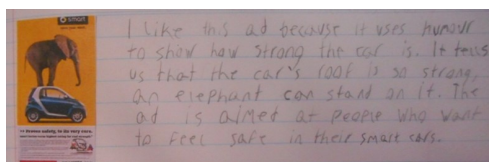 smart
I like this ad because it uses humour
to show how strong the car is. It tells
us that the car's roof is so strong,
an elephant can stand on it. The
ad is aimed at people who want
to feel safe in their smart cars.